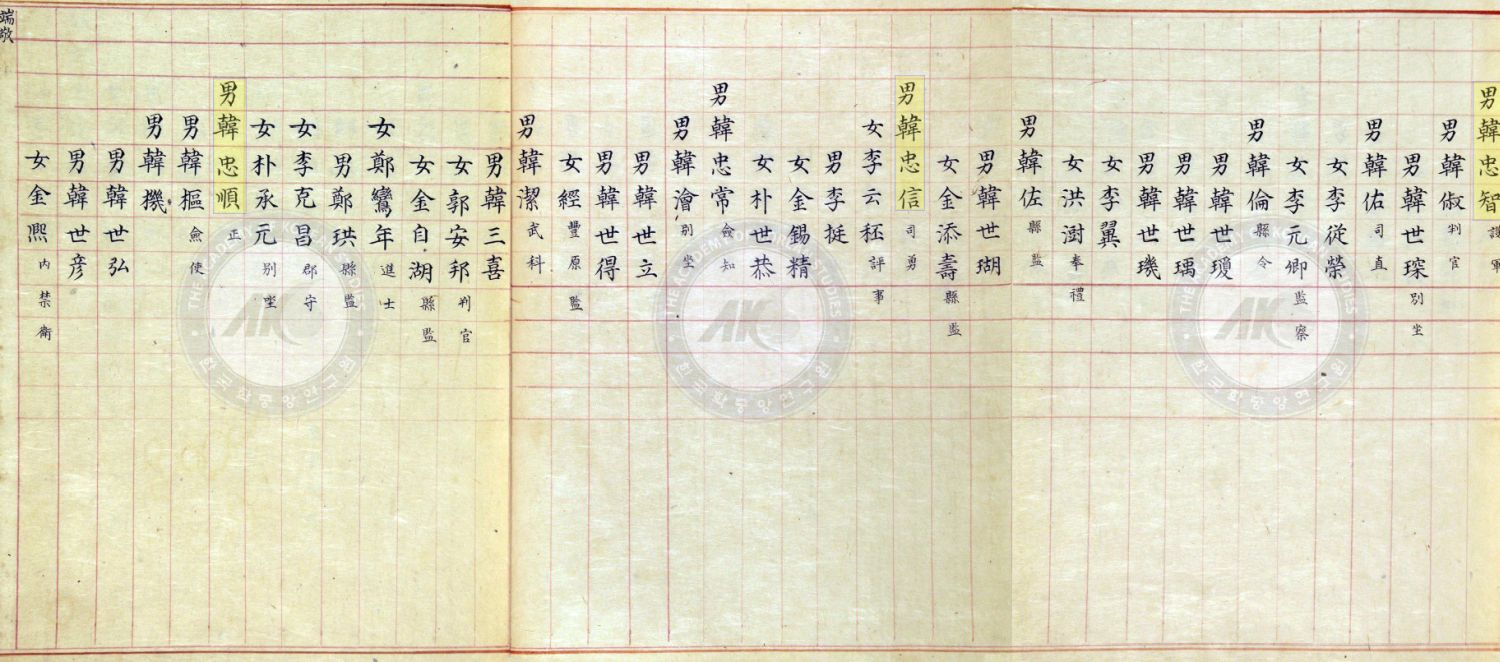 男韓忠智護軍
男韓俶判官
男韓世琛別坐
男韓佑司直
女李從榮
女李元卿監察
男韓倫縣令
男韓世瓊
男韓世瑀
男韓世璣
女李翼
女洪澍奉禮
男韓佐縣監
男韓世瑚
女金添壽縣監
男韓忠信司勇
女李云秠評事
男李挺
女金錫精
女朴世恭
男韓忠常僉知
男韓澮別坐
男韓世立
男韓世得
女經豐原監
男韓潔武科
男韓三喜
女郭安邦判官
女金自湖縣監
女鄭鸞年進士
男鄭珙縣監
女李克昌郡守
女朴承元別坐
男韓忠順正
男韓樞僉使
男韓機
男韓世弘
男韓世彦
女金熈內禁衛
端敬
THE ACADEMY OF KOREAN STUDIES
AK
한국학중앙연구원
THE ACADEMY OF KOREAN STUDIES
AK
한국학중앙연구원
THE ACADEMY OF KOREAN STUDIES
AK
한국학중앙연구원